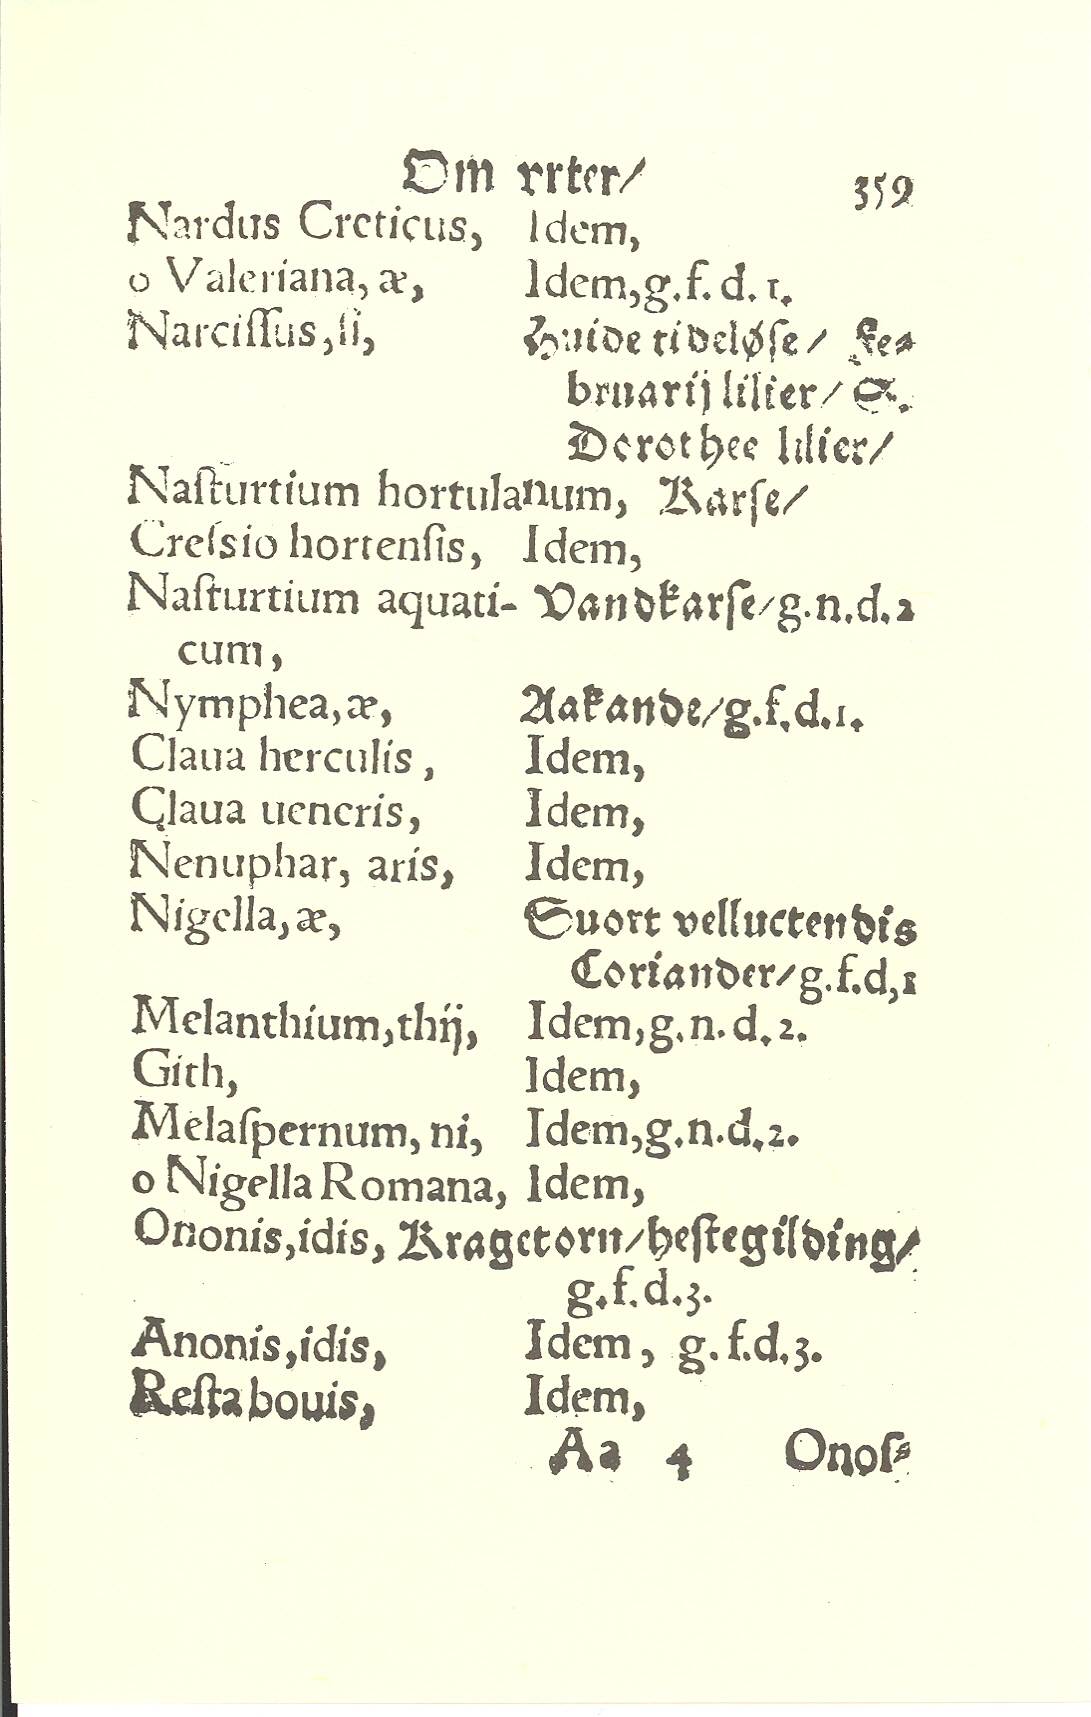 Om vrter/ 359
Nardus Creticus, Idem,
o Valeriana, æ, Idem,g.f.d.1.
Narciſſus,ſi, Huide tideløſe/ Fe⸗
bruarij lilier/ S.
Dorothee lilier/
Naſturtium hortulanum, Karſe/
Creſsio hortenſis, Idem,
Naſturtium aquati- Vandkarſe/g.n.d.2
cum,
Nymphea,æ, Aakande/g.f.d.1.
Claua herculis, Idem,
Claua ueneris, Idem,
Nenuphar, aris, Idem,
Nigella,æ, Suort velluctendis
Coriander/g.f.d,1
Melanthium,thij, Idem,g.n.d.2.
Gith, Idem,
Melaſpernum, ni, Idem,g.n.d.2.
o Nigella Romana, Idem,
Ononis,idis, Kragetorn/heſtegilding/
g.f.d.3.
Anonis,idis, Idem, g.f.d.3.
Reſta bouis, Idem,
Aa 4 Onoſ⸗